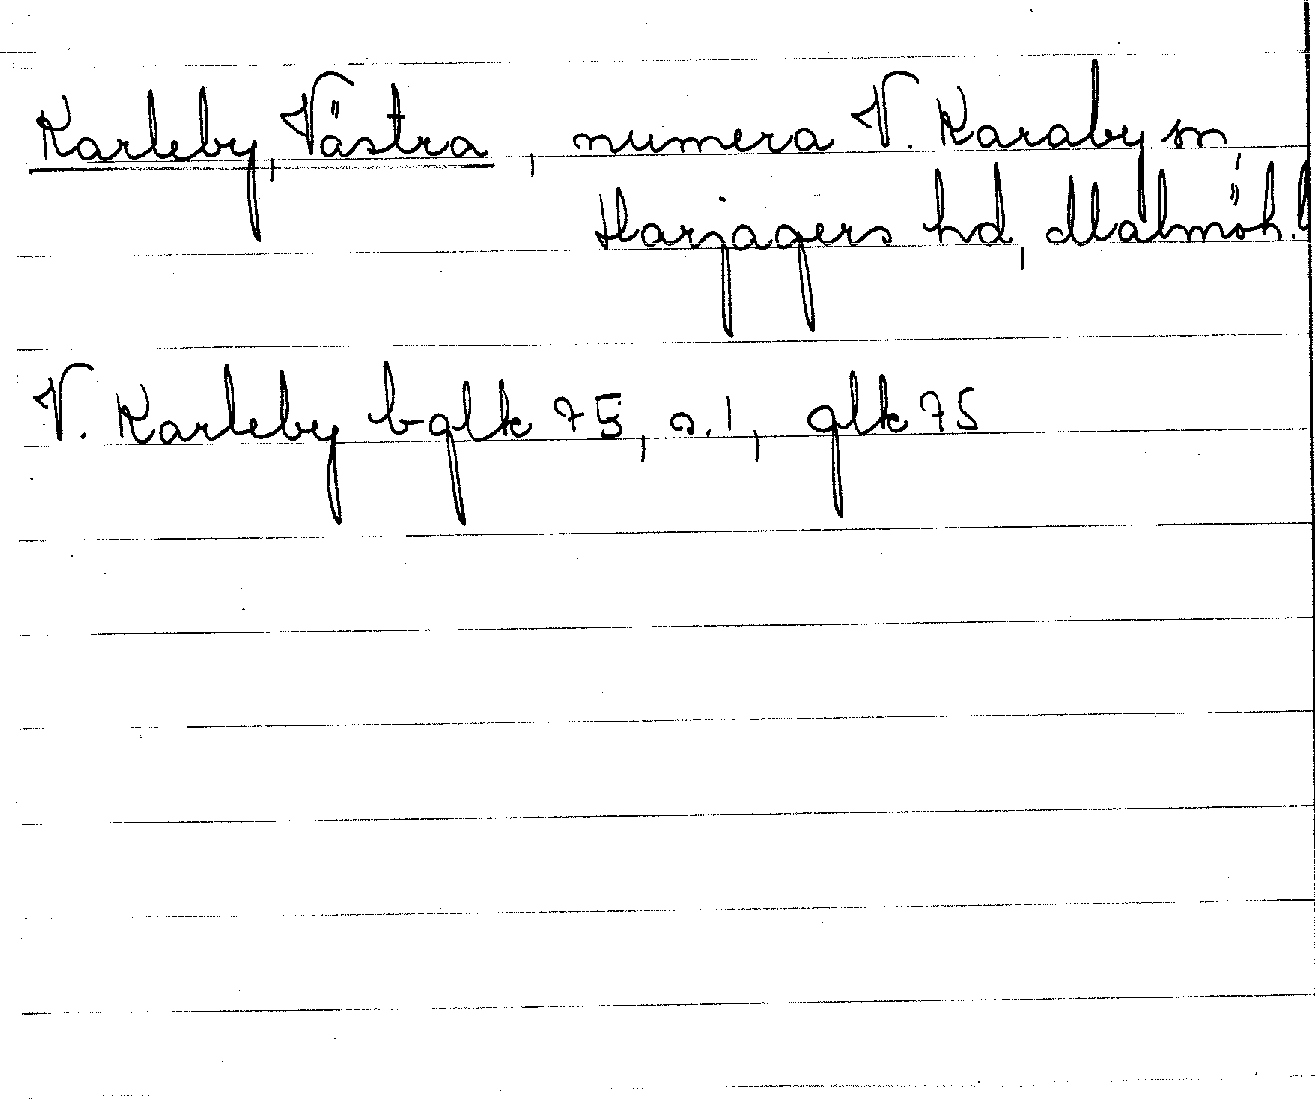 Karleby, Västra, numera V. Karaby sn,
Harjagers hd, Malmöh. l
V. Karleby b-glk 75, s. 1, glk 75